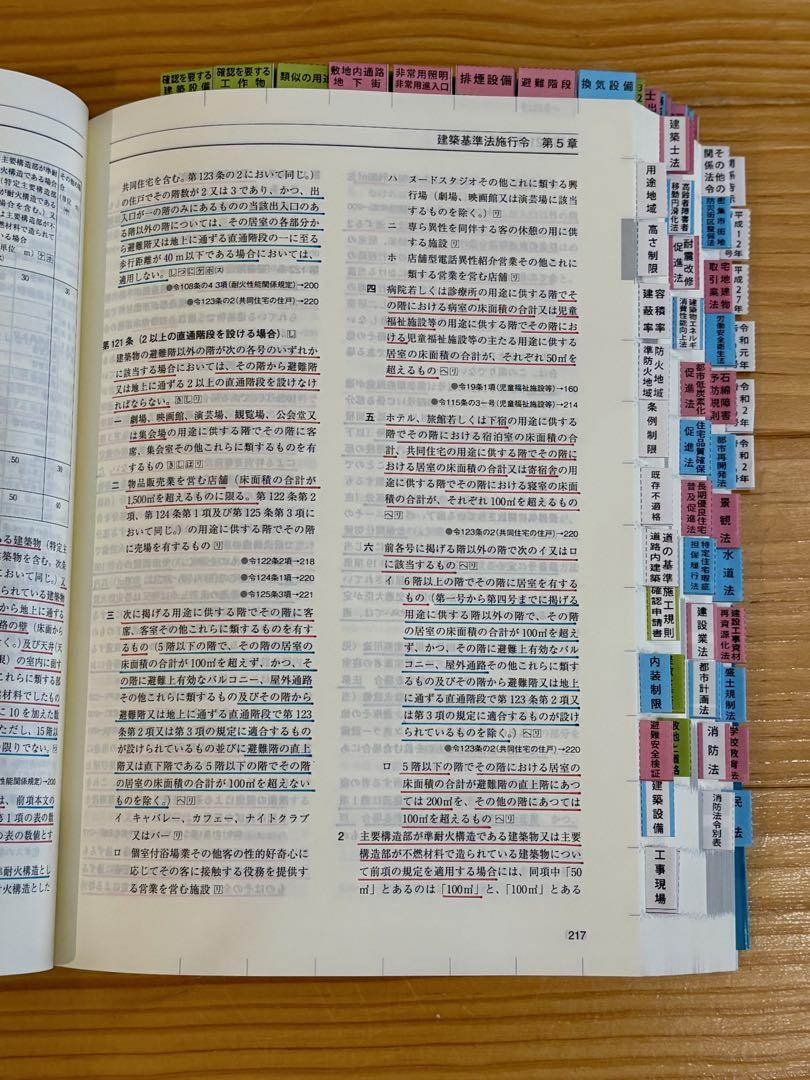 確認を要する
建築設備
確認を要する
工作物
類似の用途
敷地内通路
地下街
非常用照明
非常用進入口
排煙設備
避難階段
換気設備
建築基準法施行令 第5章
共同住宅を含む。第123条の2において同じ。)
の住戸でその階数が2又は3であり、かつ、出
入口が一の階のみにあるものの当該出入口のあ
る階以外の階については、その居室の各部分か
ら避難階又は地上に通ずる直通階段の一に至る
歩行距離が40m以下である場合においては、
適用しない。
●令108条の4 3項(耐火性能関係規定)→200
●令123条の2(共同住宅の住戸)→220
第121条(2以上の直通階段を設ける場合)
建築物の避難階以外の階が次の各号のいずれか
に該当する場合においては、その階から避難階
又は地上に通ずる2以上の直通階段を設けなけ
ればならない。
一 劇場、映画館、演芸場、観覧場、公会堂又
は集会場の用途に供する階でその階に客
席、集会室その他これらに類するものを有
するもの
二 物品販売業を営む店舗(床面積の合計が
1,500㎡を超えるものに限る。第122条第2
項、第124条第1項及び第125条第3項に
おいて同じ。)の用途に供する階でその階
に売場を有するもの
●令122条2項→218
●令124条1項→220
●令125条3項→221
三 次に掲げる用途に供する階でその階に客
席、客室その他これらに類するものを有す
るもの(5階以下の階で、その階の居室の
床面積の合計が100㎡を超えず、かつ、そ
の階に避難上有効なバルコニー、屋外通路
その他これらに類するもの及びその階から
避難階又は地上に通ずる直通階段で第123
条第2項又は第3項の規定に適合するもの
が設けられているもの並びに避難階の直上
階又は直下階である5階以下の階でその階
の居室の床面積の合計が100㎡を超えない
ものを除く。)
イ キャバレー、カフェー、ナイトクラブ
又はバー
ロ 個室付浴場業その他客の性的好奇心に
応じてその客に接触する役務を提供す
る営業を営む施設
ハ ヌードスタジオその他これに類する興
行場(劇場、映画館又は演芸場に該当
するものを除く。)
ニ 専ら異性を同伴する客の休憩の用に供
する施設
ホ 店舗型電話異性紹介営業その他これに
類する営業を営む店舗
四 病院若しくは診療所の用途に供する階でそ
の階における病室の床面積の合計又は児童
福祉施設等の用途に供する階でその階にお
ける児童福祉施設等の主たる用途に供する
居室の床面積の合計が、それぞれ50㎡を
超えるもの
●令19条1項(児童福祉施設等)→160
●令115条の3一号(児童福祉施設等)→214
五 ホテル、旅館若しくは下宿の用途に供する
階でその階における宿泊室の床面積の合
計、共同住宅の用途に供する階でその階に
おける居室の床面積の合計又は寄宿舎の用
途に供する階でその階における寝室の床面
積の合計が、それぞれ100㎡を超えるもの
●令123条の2(共同住宅の住戸)→220
六 前各号に掲げる階以外の階で次のイ又はロ
に該当するもの
イ 6階以上の階でその階に居室を有する
もの(第一号から第四号までに掲げる
用途に供する階以外の階で、その階
の居室の床面積の合計が100㎡を超え
ず、かつ、その階に避難上有効なバル
コニー、屋外通路その他これらに類す
るもの及びその階から避難階又は地上
に通ずる直通階段で第123条第2項又
は第3項の規定に適合するものが設け
られているものを除く。)
●令123条の2(共同住宅の住戸)→220
ロ 5階以下の階でその階における居室の
床面積の合計が避難階の直上階にあつ
ては200㎡を、その他の階にあつては
100㎡を超えるもの
2 主要構造部が準耐火構造である建築物又は主要
構造部が不燃材料で造られている建築物につい
て前項の規定を適用する場合には、同項中「50
㎡」とあるのは「100㎡」と、「100㎡」とある
217
建築士法
用途地域
高さ制限
容積率
建蔽率
防火地域
準防火地域
条例制限
既存不適格
道の基準
道路内建築
施工規則
確認申請書
内装制限
避難安全検証
建築設備
工事現場
高齢者障害者
移動円滑化法
耐震改修
促進法
建築物エネルギー
消費性能向上法
都市低炭素化
促進法
住宅品質確保
促進法
長期優良住宅
普及促進法
特定住宅瑕疵
担保履行法
建設業法
都市計画法
消防法
消防法令別表
その他の
関係法令
密集市街地
防災街区整備法
宅地建物
取引業法
労働安全衛生法
石綿障害
予防規則
都市再開発法
景観法
水道法
建設工事資材
再資源化法
盛土規制法
学校教育法
民法
平成12年
平成27年
令和元年
令和2年
令和2年